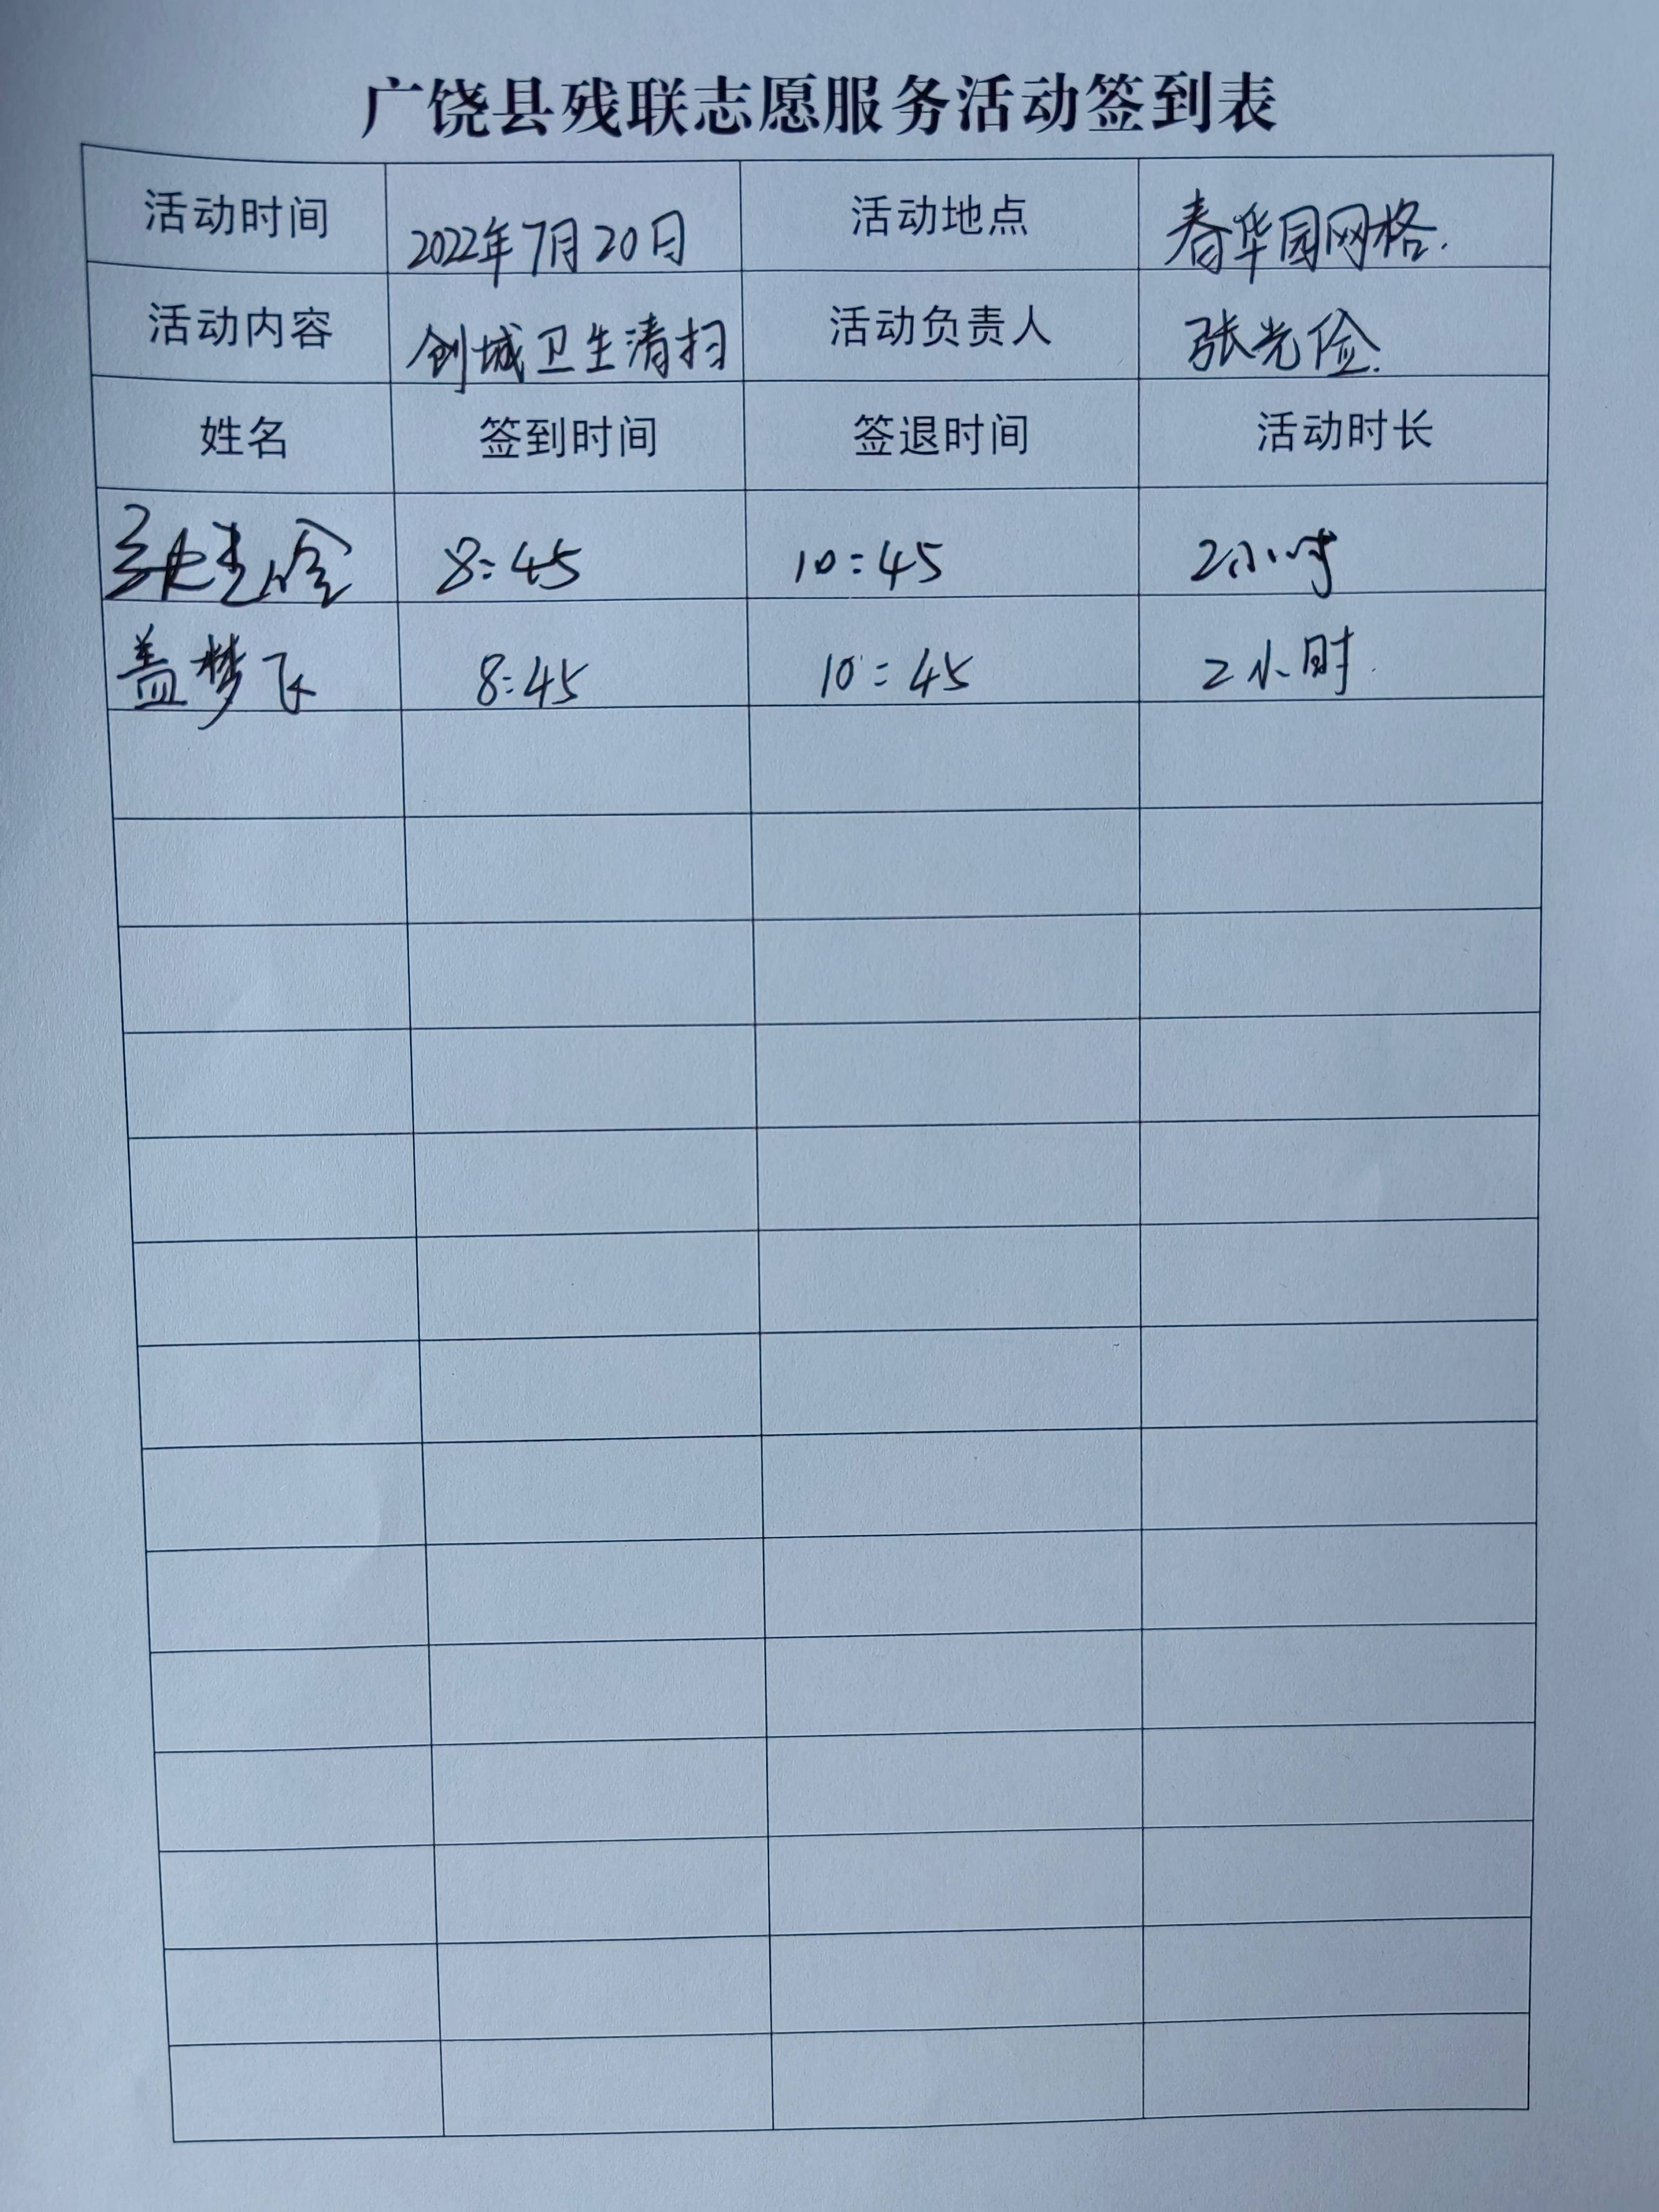 广饶县残联志愿服务活动签到表
活动时间 2022年7月20日 活动地点 春华园网格.
活动内容 创城卫生清扫 活动负责人 张光俭.
姓名 签到时间 签退时间 活动时长
张光俭 8:45 10:45 2小时
盖梦飞 8:45 10:45 2小时.